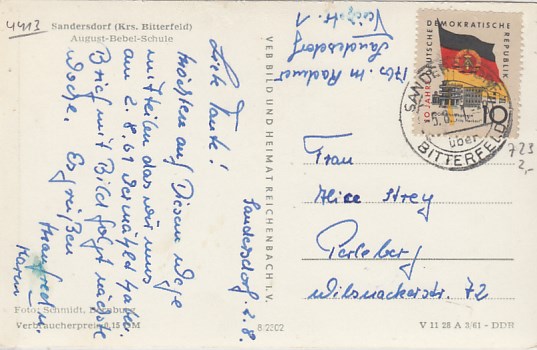 4413
Sandersdorf (Krs. Bitterfeld)
August-Bebel-Schule
Sandersdorf 2.8.
Liebe Tante!
Möchten auf diesem Wege
mitteilen das wir uns
am 2.8.61 vermählt haben.
Brief mit Bild folgt nächste
Woche. Es grüßen
Manfred u.
Karin
Foto: Schmidt,
Verbraucherpreis 0,15 DM
VEB BILD UND HEIMAT REICHENBACH I. V.
8/2302
Sandersdorf
DEUTSCHE DEMOKRATISCHE REPUBLIK
10 JAHRE
10
SANDERSDORF
über
BITTERFELD
723
2,-
Frau
Alice Strey
Perleberg
Wilsnackerstr. 72
V 11 28 A 3/61 - DDR